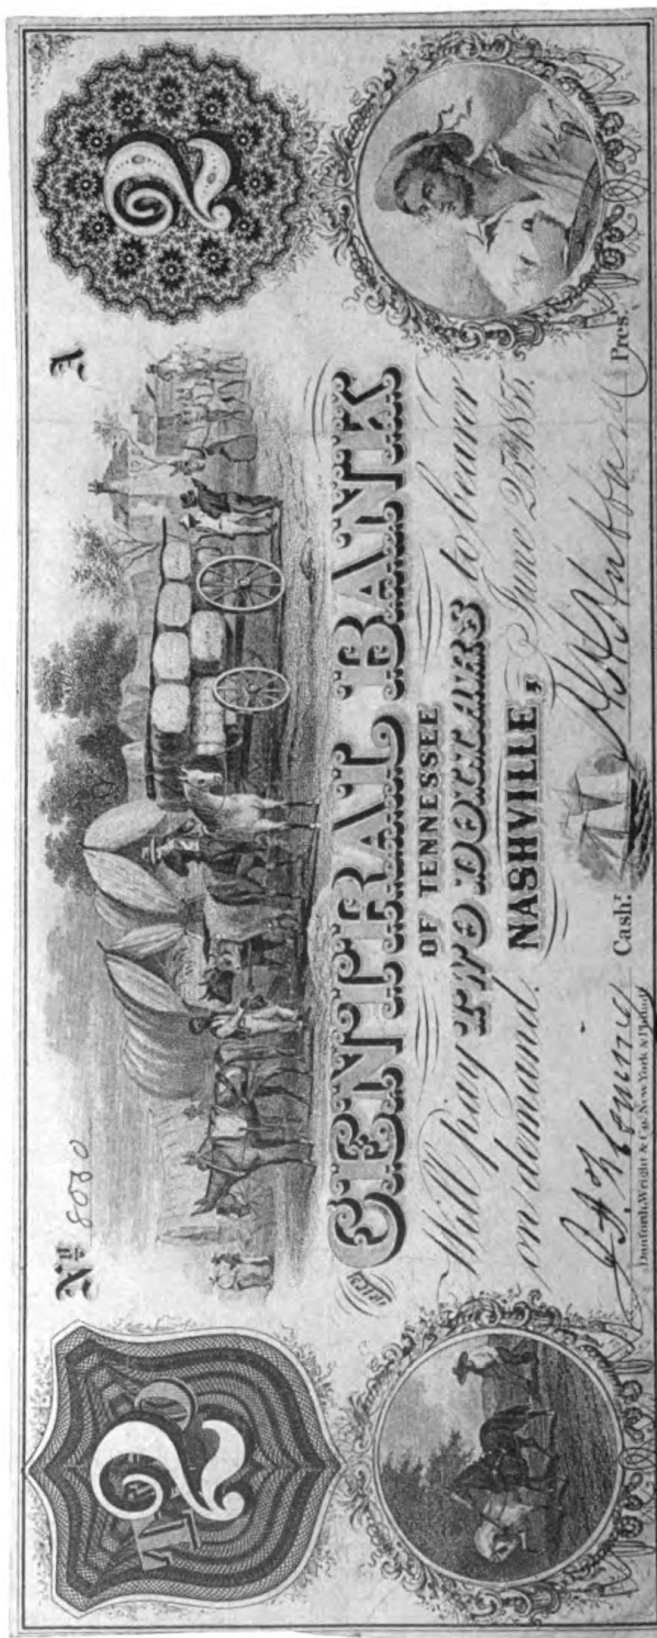 2
TWO
Nº 8080
A
2
THE
CENTRAL BANK
OF TENNESSEE
Will pay TWO DOLLARS to bearer
on demand.
NASHVILLE, June 25th 1855.
Cash.r
Pres.t
Danforth, Wright & Co. New York & Philad.a